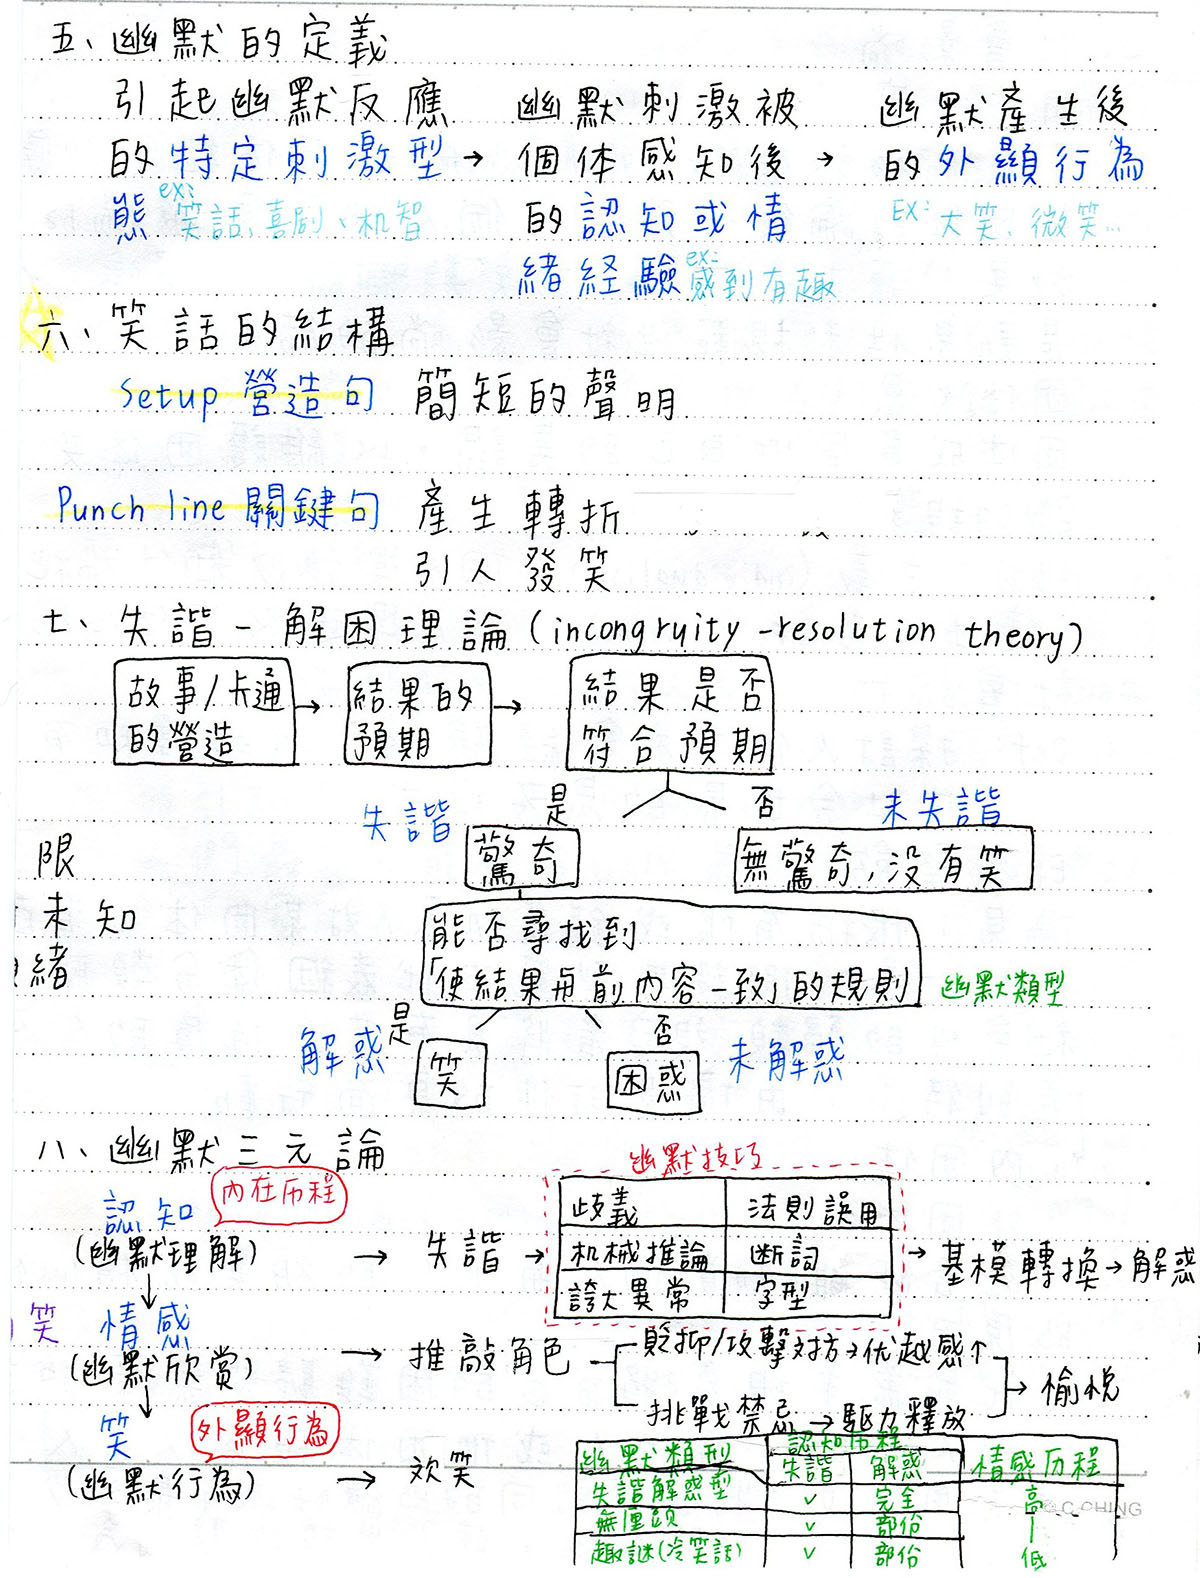 五、幽默的定義
引起幽默反應 幽默刺激被 幽默產生後
的特定刺激型→ 個体感知後→ 的外顯行為
態 ex: 笑話、喜剧、机智 的認知或情 EX: 大笑、微笑…
緒経驗 ex: 感到有趣
六、笑話的結構
Setup 營造句 簡短的聲明
Punch line 關鍵句 產生轉折
引人發笑
七、失諧-解困理論(incongruity-resolution theory)
故事/卡通 → 結果的 → 結果是否
的營造 預期 符合預期
失諧 是 否 未失諧
驚奇 無驚奇,没有笑
限
未知
緒
能否尋找到
「使結果与前內容一致」的規則 幽默類型
解惑 是 否 未解惑
笑 困惑
八、幽默三元論
幽默技巧
認知 內在历程
(幽默理解) → 失諧 →
歧義 法則誤用
机械推論 断詞
誇大異常 字型
→ 基模轉換→解惑
笑 情感
(幽默欣賞) → 推敲角色
貶抑/攻擊对方→优越感↑
挑戰禁忌→驅力釋放
→ 愉悅
笑 外顯行為
(幽默行為) → 欢笑
幽默類型 認知历程 情感历程
失諧 解惑
失諧解惑型 v 完全 高
無厘頭 v 部份 |
趣謎(冷笑話) v 部份 低
C.CHING